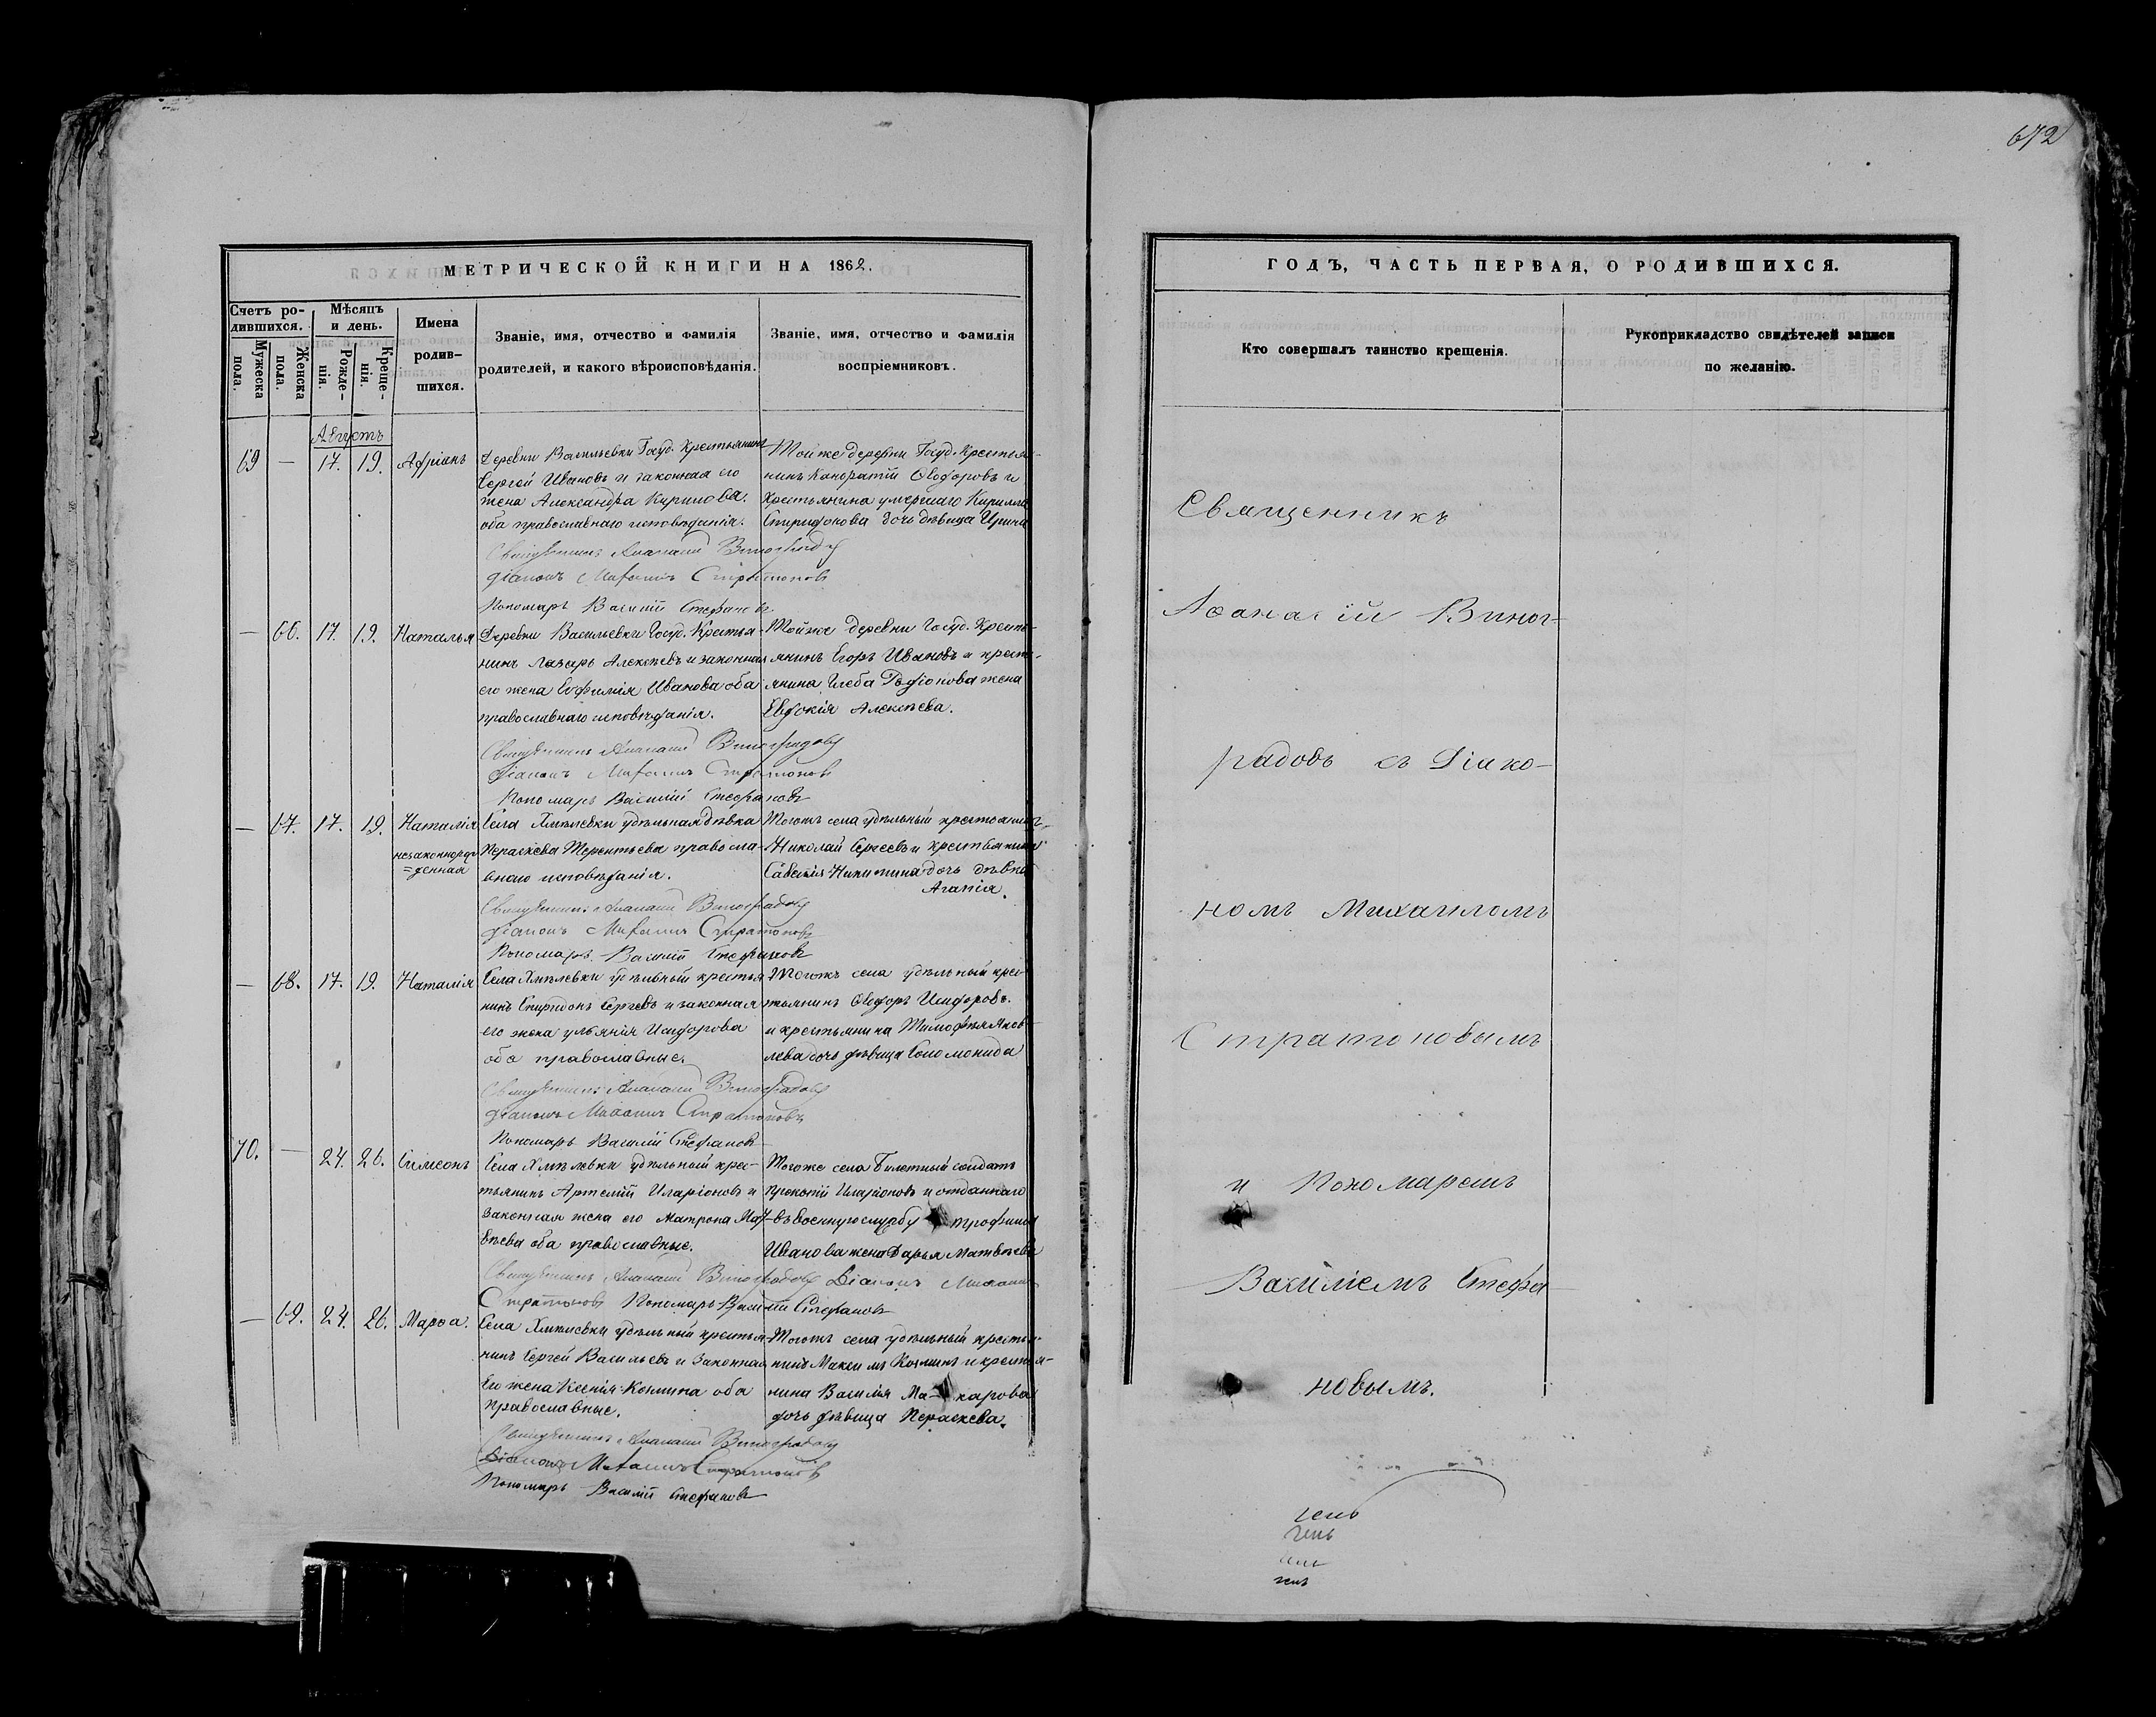 672
МЕТРИЧЕСКОЙ КНИГИ НА 1862.
Счетъ ро-
дившихся.
Мужеска
пола.
Женска
пола.
Мѣсяцъ
и день.
Рожде-
нія.
Креще-
нія.
Имена
родив-
шихся.
Званіе, имя, отчество и фамилія
родителей, и какого вѣроисповѣданія.
Званіе, имя, отчество и фамилія
воспріемниковъ.
Августъ
69 — 17. 19. Адріанъ
Деревни Васильевки Госуд. Крестьянинъ
Сергей Ивановъ и законная его
жена Александра Кирилова.
оба православнаго исповѣданія.
Тойже деревни Госуд. Крестья-
нинъ Кондратій Ѳедоровъ и
крестьянина умершаго Кирилла
Спиридонова дочь дѣвица Ирина
Священникъ Аѳанасій Виноградовъ
Діаконъ Михаилъ Стратоновъ
Пономарь Василій Стефановъ
— 66. 17. 19. Наталья
Деревни Васильевки Госуд. Крестья-
нинъ Лазарь Алексѣевъ и законная
его жена Евфимія Иванова оба
православнаго исповѣданія.
Тойже деревни Госуд. Кресть-
янинъ Егоръ Ивановъ и кресть-
янина Глеба Родіонова жена
Евдокія Алексѣева.
Священникъ Аѳанасій Виноградовъ
Діаконъ Михаилъ Стратоновъ
Пономарь Василій Стефановъ
— 67. 17. 19. Наталія
незаконнорож
=денная
Села Хмѣлевки удѣльная дѣвка
Параскева Терентьева правосла-
внаго исповѣданія.
Тогожъ села удѣльный крестьянинъ
Николай Сергеевъ и крестьянина
Савелія Никитина дочь дѣвка
Агапія.
Священникъ Аѳанасій Виноградовъ
Діаконъ Михаилъ Стратоновъ
Пономарь Василій Стефановъ
— 68. 17. 19. Наталія
Села Хмѣлевки удѣльный крестья
нинъ Спиридонъ Сергѣевъ и законная
его жена Ульянія Исидорова
оба православные.
Тогожъ села удѣльный крес-
тьянинъ Ѳедоръ Исидоровъ.
и крестьянина Тимофѣя Яков-
лева дочь дѣвица Соломонида
Священникъ Аѳанасій Виноградовъ
Діаконъ Михаилъ Стратоновъ
Пономарь Василій Стефановъ
70. — 24. 26. Симеонъ
Села Хмѣлевки удѣльный крес-
тьянинъ Артемій Иларіоновъ и
законная жена его Матрона Мат-
вѣева оба православные.
Тогоже села Билетный солдатъ
Прокопій Иларіоновъ и отданнаго
въ военную службу Трофима
Иванова жена Дарья Матвѣева
Священникъ Аѳанасій Виноградовъ Діаконъ Михаилъ
Стратоновъ Пономарь Василій Стефановъ
— 69. 24. 26. Марѳа.
Села Хмѣлевки удѣльный крестья-
нинъ Сергей Васильевъ и Законная
Его жена Ксенія Козмина оба
православные.
Тогожъ села удѣльный крестья-
нинъ Максимъ Козминъ и крестья-
нина Василія Ма-карова
дочь дѣвица Параскева.
Священникъ Аѳанасій Виноградовъ
Діаконъ Михаилъ Стратоновъ
Пономарь Василій Стефановъ
ГОДЪ, ЧАСТЬ ПЕРВАЯ, О РОДИВШИХСЯ.
Кто совершалъ таинство крещенія.
Рукоприкладство свидѣтелей записи
по желанію.
Священникъ
Аѳанасій Виног-
радовъ съ Діако-
номъ Михаиломъ
Стратоновымъ
и Пономаремъ
Василіемъ Стефа-
новымъ.